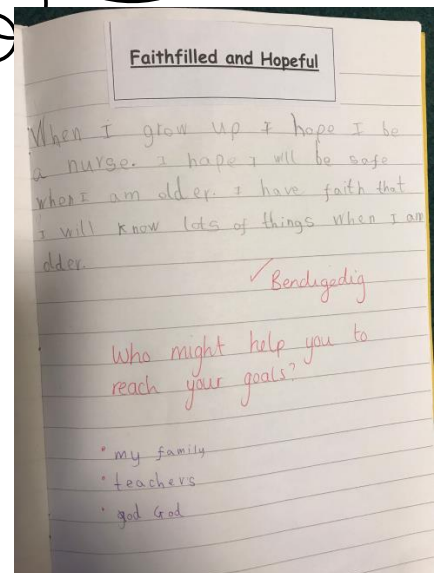 Faithfilled and Hopeful
When I grow up I hope I be
a nurse. I hope I will be safe
when I am older. I have faith that
I will know lots of things when I am
older.
✓ Bendigedig
Who might help you to
reach your goals?
• my family
• teachers
• god God